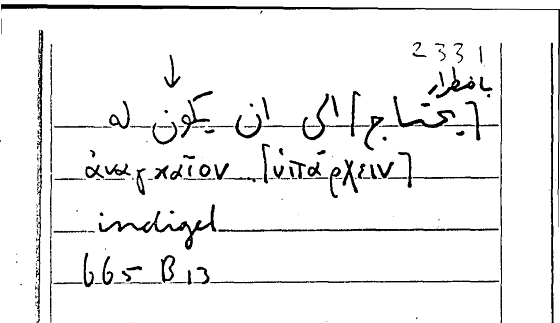 2331
باضطرار
[يحتاج] الى ان يكون له
ἀναγκαῖον [ὑπάρχειν]
indiget
665 B 13